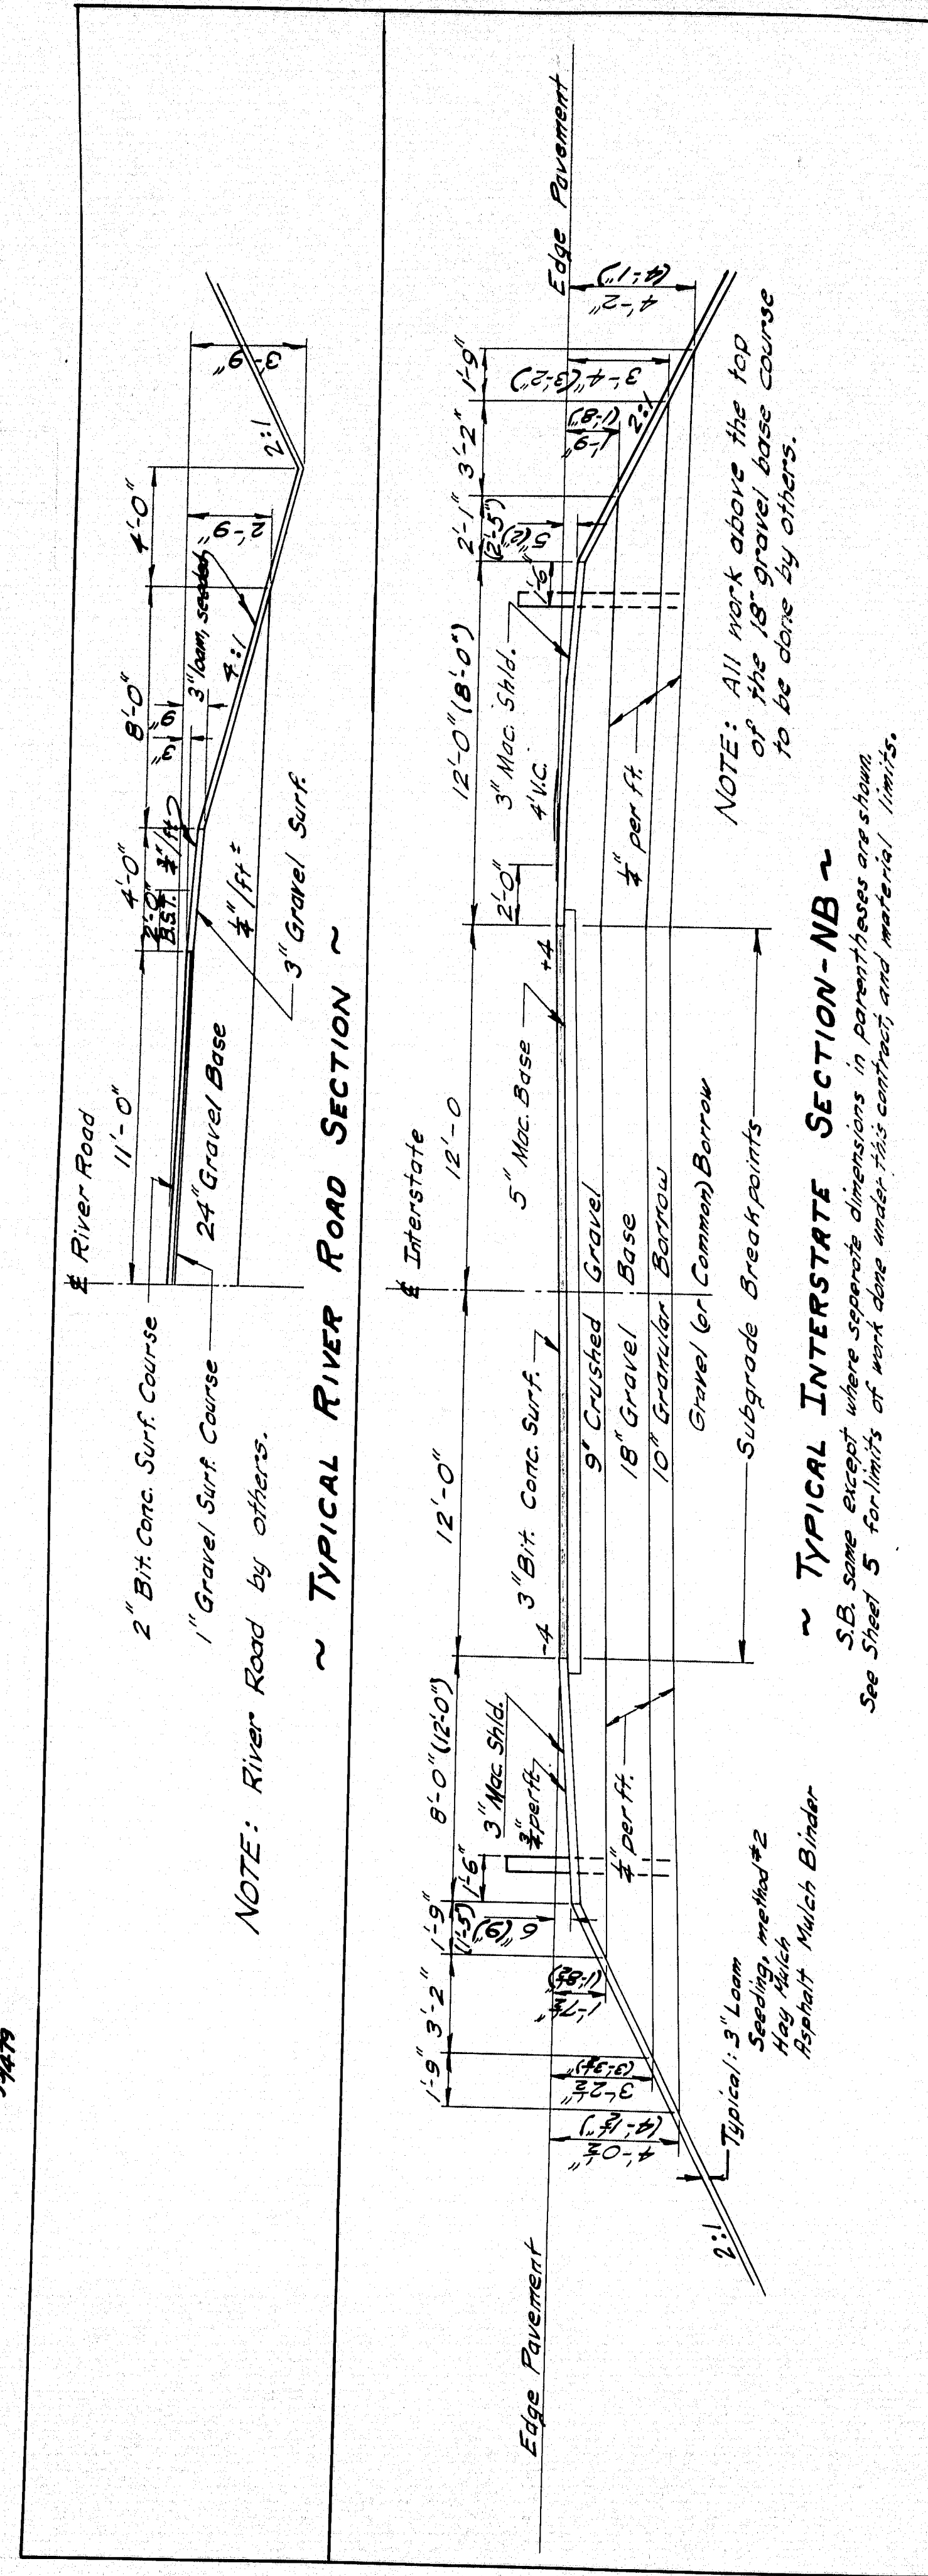 ℄ River Road
11'-0"
4'-0"
8'-0"
4'-0"
2'-0"
B.S.T.
3/4"/ft
3"
9"
3" loam, seeded
4:1
2'-9"
2:1
3'-9"
2" Bit. Conc. Surf. Course
1" Gravel Surf. Course
24" Gravel Base
1/4"/ft ±
3" Gravel Surf.
NOTE: River Road by others.
~ TYPICAL RIVER ROAD SECTION ~
℄ Interstate
1'-9"
3'-2"
1'-9"
(1'-5")
8'-0" (12'-0")
12'-0"
12'-0
12'-0" (8'-0")
2'-1"
(2'-5")
3'-2"
1'-9"
Edge Pavement
Edge Pavement
4'-0 1/2"
(4'-1 1/2")
3'-2 1/2"
(3'-3 1/2")
1'-7 1/2"
(1'-8 1/2")
6" (9")
1'-6"
3" Mac. Shld.
3/4" per ft.
-4
3" Bit. Conc. Surf.
5" Mac. Base
+4
2'-0"
3" Mac. Shld.
4' V.C.
1'-6"
5" (2")
1'-9"
(1'-8")
3'-4" (3'-2")
4'-2"
(4'-1")
2:1
2:1
1/4" per ft.
1/4" per ft.
9" Crushed Gravel
18" Gravel Base
10" Granular Borrow
Gravel (or Common) Borrow
Subgrade Breakpoints
Typical: 3" Loam
Seeding, method #2
Hay Mulch
Asphalt Mulch Binder
NOTE: All work above the top
of the 18" gravel base course
to be done by others.
~ TYPICAL INTERSTATE SECTION-NB ~
S.B. same except where seperate dimensions in parentheses are shown.
See Sheet 5 for limits of work done under this contract, and material limits.